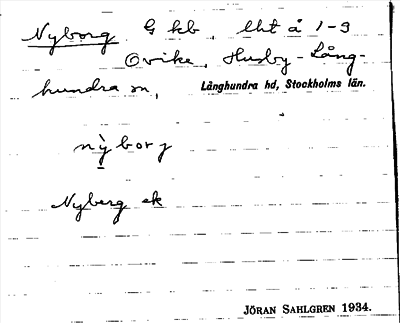 Nyborg G kb, lht å 1-3
Ovike, Husby-Lång-
hundra sn, Långhundra hd, Stockholms län.
nỳborj
Nyberg ek
JÖRAN SAHLGREN 1934.